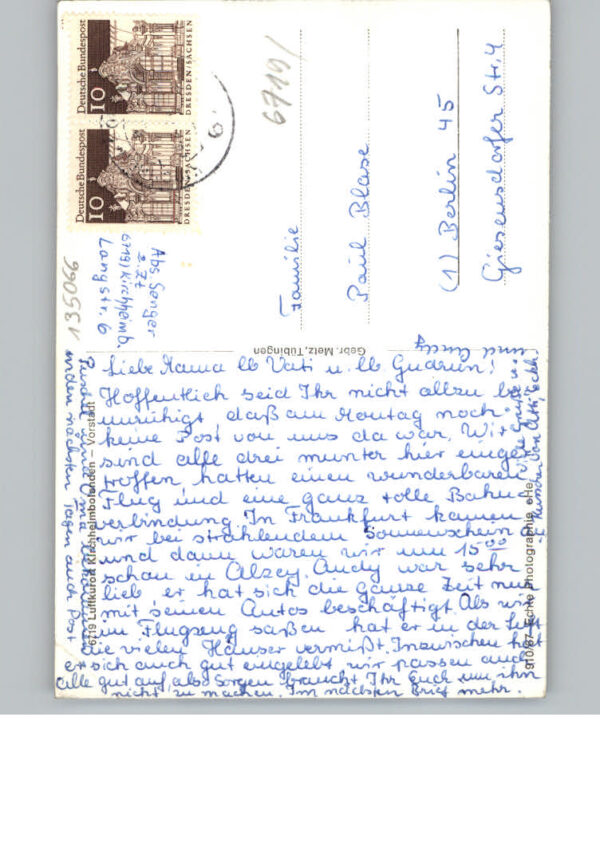 Liebe Mama lb Vati u. lb Gudrun!
Hoffentlich seid Ihr nicht allzu be
unruhigt, daß am Montag noch
keine Post von uns da war. Wir
sind alle drei munter hier einge
troffen, hatten einen wunderbaren
Flug und eine ganz tolle Bahn
verbindung. In Frankfurt kamen
wir bei strahlendem Sonnenschein an
und dann waren wir um 15⁰⁰
schon in Alzey. Andy war sehr
lieb, er hat sich die ganze Zeit nur
mit seinen Autos beschäftigt. Als wir
im Flugzeug saßen hat er in der Luft
die vielen Häuser vermißt. Inzwischen hat
er sich auch gut eingelebt wir passen auch
alle gut auf also Sorgen braucht Ihr Euch um ihn
nicht zu machen. Im nächsten Brief mehr.
und Andy
in den nächsten Tagen auch Post
6719 Luftkurort Kirchheimbolanden – Vorstadt
Gebr. Metz, Tübingen
910/67 Echte photographie
Abs Senger
z. Zt
6719) Kirchheimb.
Langstr. 6
135066
6719/
Deutsche Bundespost
10
DRESDEN/SACHSEN
Deutsche Bundespost
10
DRESDEN/SACHSEN
Familie
Paul Blase
(1) Berlin 45
Giesensdorfer Str. 4